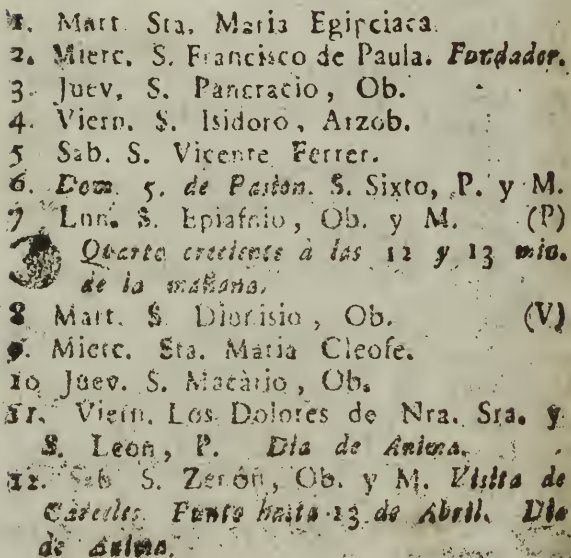 1. Mart. Sta. Maria Egipciaca.
2. Mierc. S. Francisco de Paula. Fundador.
3. Juev. S. Pancracio, Ob.
4. Viern. S. Isidoro, Arzob.
5 Sab. S. Vicente Ferrer.
6. Dom. 5. de Pasion. S. Sixto, P. y M.
7 Lun. S. Epiafnio, Ob. y M. (P)
Quarto creciente à las 12 y 13 min.
de la mañana.
8 Mart. S. Dionisio, Ob. (V)
9. Mierc. Sta. Maria Cleofe.
10 Juev. S. Macàrio, Ob.
11. Viern. Los Dolores de Nra. Sra. y
S. Leon, P. Dia de Anima.
12. Sab. S. Zenón, Ob. y M. Visita de
Carceles. Punto hasta 23 de Abril. Dia
de Anima.